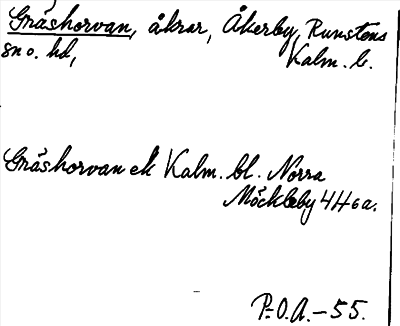 Gråshorvan, åkrar, Åkerby, Runstens
sn o. hd, Kalm. l.
Gråshorvan ek Kalm. bl. Norra
Möckleby 4H6a.
P.-O.A. - 55.